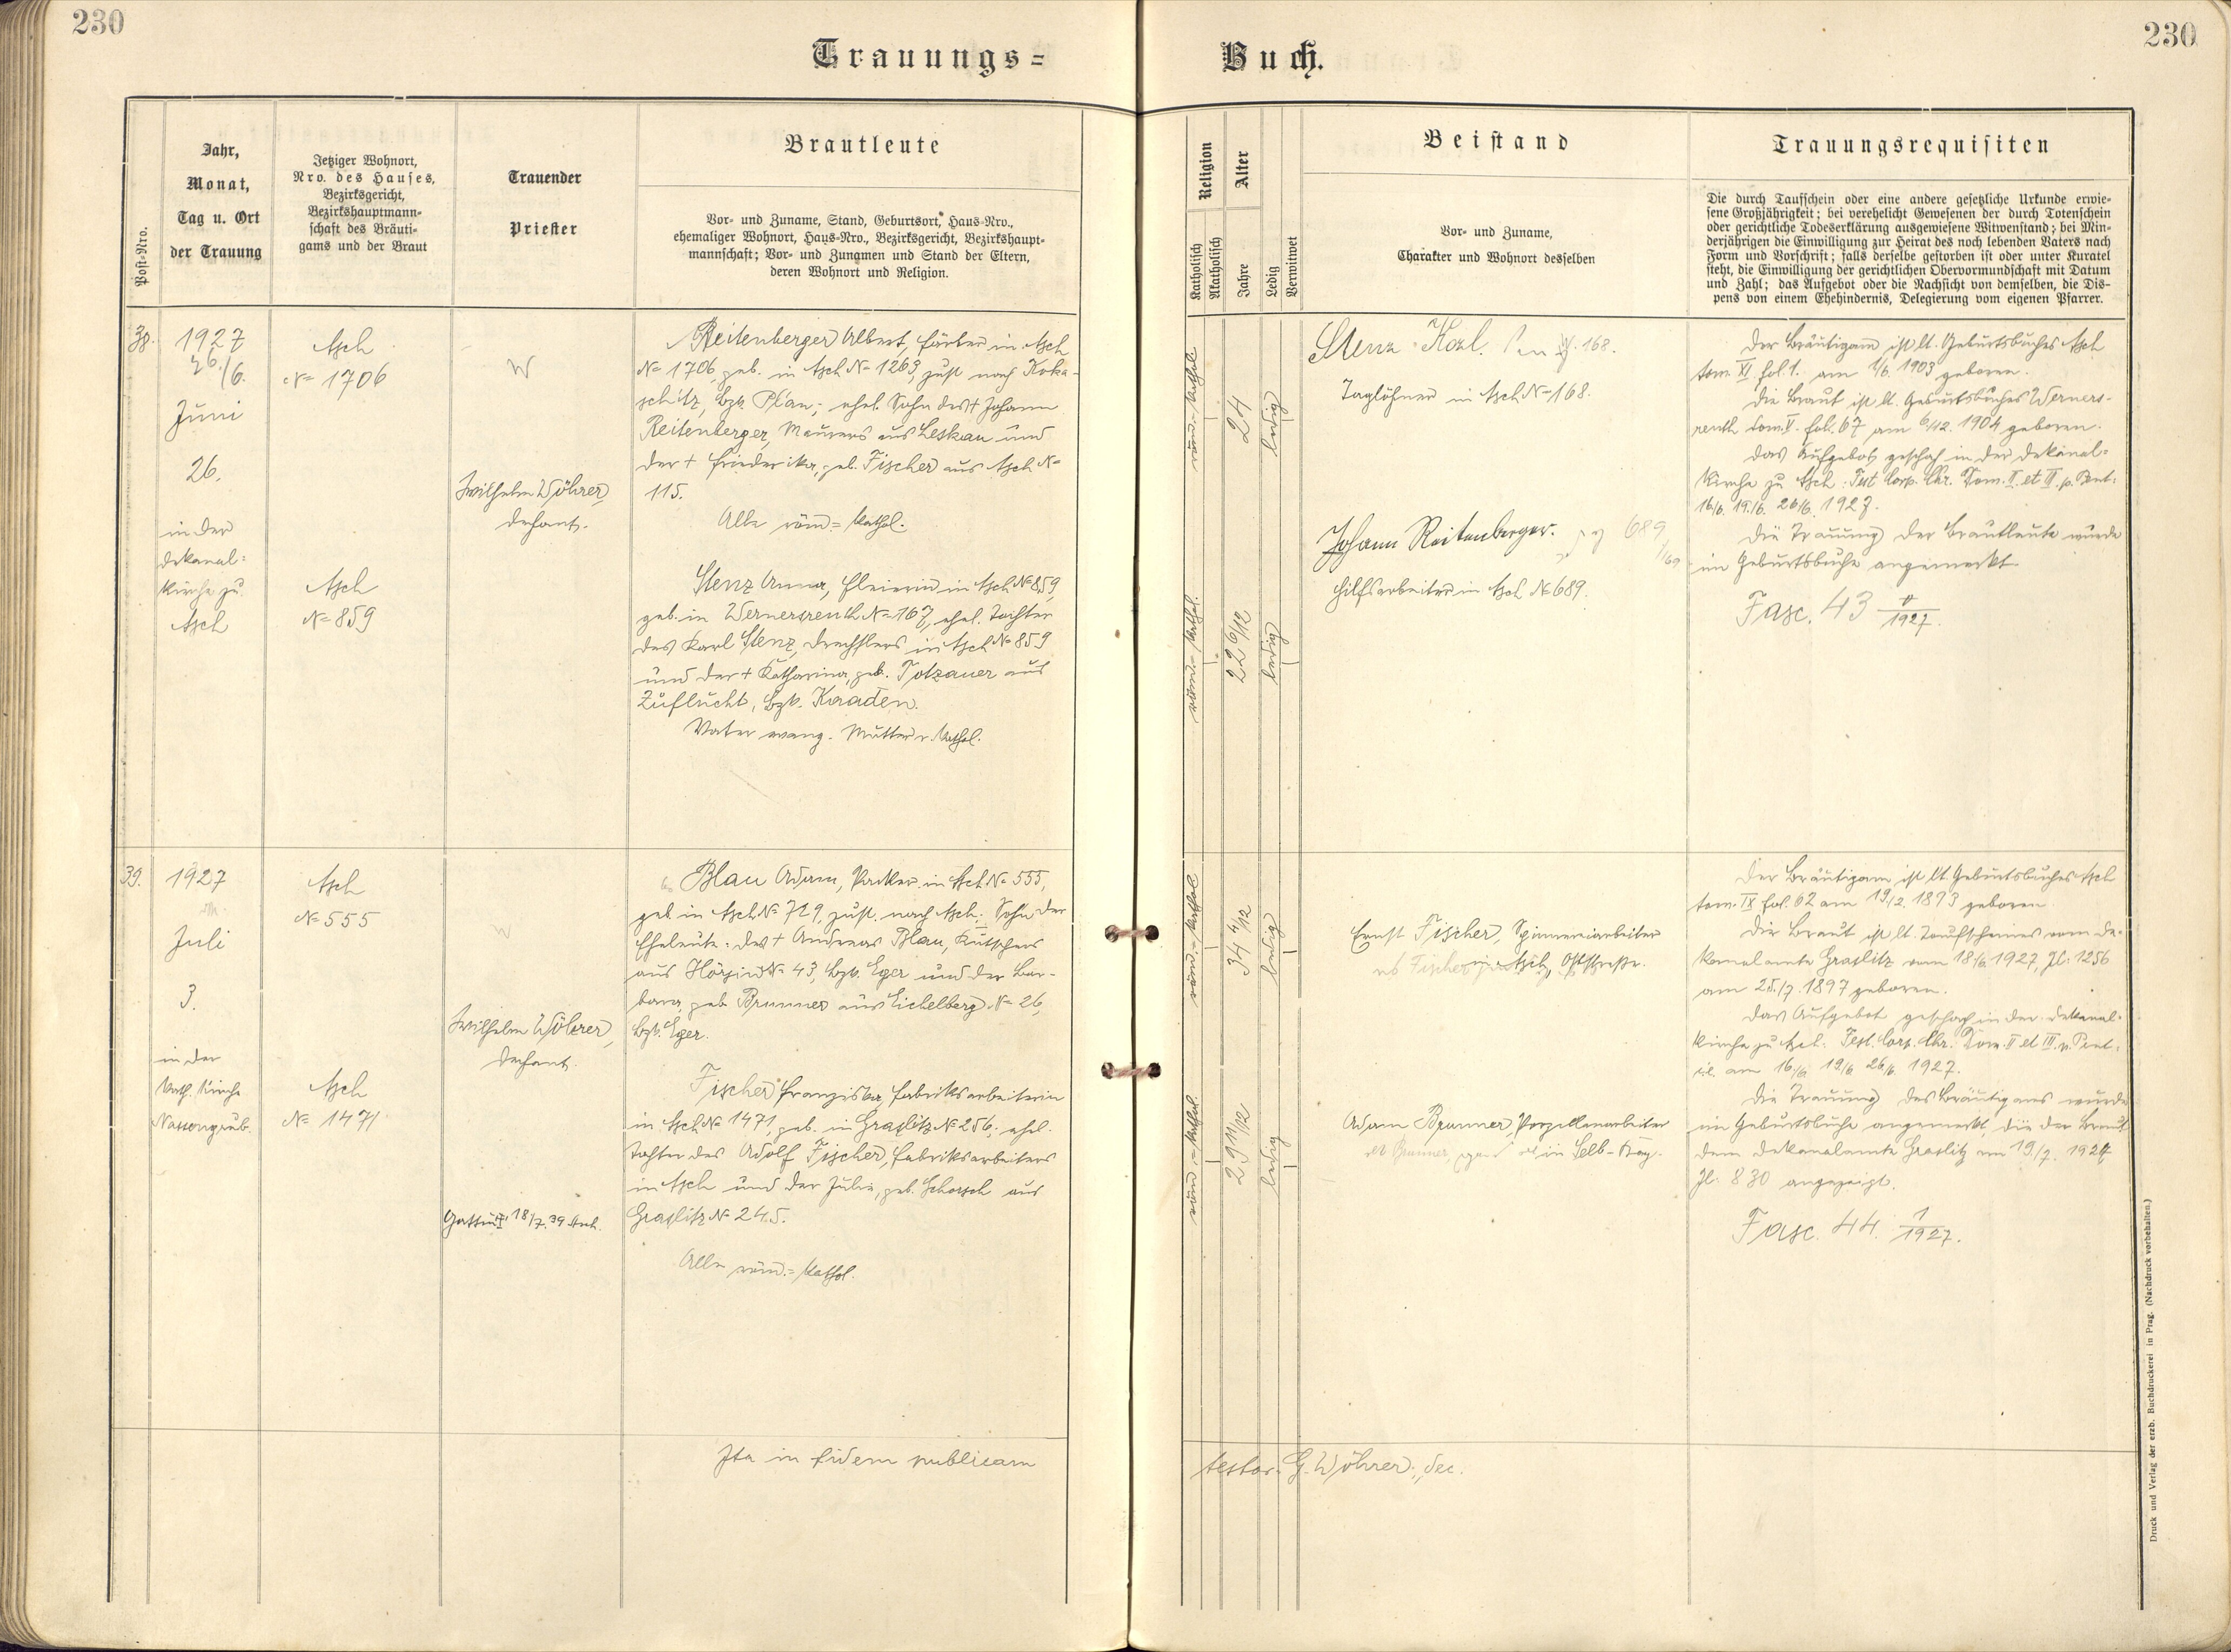 230
230
Trauungs=
Buch.
Post=Nro.
Jahr,
Monat,
Tag u. Ort
der Trauung
Jetziger Wohnort,
Nro. des Hauses,
Bezirksgericht,
Bezirkshauptmann=
schaft des Bräuti=
gams und der Braut
Trauender
Priester
Brautleute
Vor= und Zuname, Stand, Geburtsort, Haus=Nro.,
ehemaliger Wohnort, Haus=Nro., Bezirksgericht, Bezirkshaupt=
mannschaft; Vor= und Zunamen und Stand der Eltern,
deren Wohnort und Religion.
Religion
Katholisch
Akatholisch
Alter
Jahre
Ledig
Verwitwet
Beistand
Vor= und Zuname,
Charakter und Wohnort desselben
Trauungsrequisiten
Die durch Taufschein oder eine andere gesetzliche Urkunde erwie=
sene Großjährigkeit; bei verehelicht Gewesenen der durch Totenschein
oder gerichtliche Todeserklärung ausgewiesene Witwenstand; bei Min=
derjährigen die Einwilligung zur Heirat des noch lebenden Vaters nach
Form und Vorschrift; falls derselbe gestorben ist oder unter Kuratel
steht, die Einwilligung der gerichtlichen Obervormundschaft mit Datum
und Zahl; das Aufgebot oder die Nachsicht von demselben, die Dis=
pens von einem Ehehindernis, Delegierung vom eigenen Pfarrer.
38.
1927
26./6.
Juni
26.
in der
Dekanal=
Kirche zu
Asch
Asch
N= 1706
Asch
N= 859
W
Wilhelm Wöhrer,
Dechant.
Reitenberger Albert, Färber in Asch
N= 1706, geb. in Asch N= 1263, zust. nach Koka-
schitz, Bzk. Plan; ehel. Sohn des † Johann
Reitenberger, Maurers aus Leskau und
der † Friederika, geb. Fischer aus Asch N=
115.
Alle röm.=kathol.
Stenz Anna, in Asch N= 859,
geb. in Wernersreuth N= 167, ehel. Tochter
des Karl Stenz, Drechslers in Asch N= 859
und der † Katharina, geb. Totzauer aus
Zuflucht, Bzk. Kaaden.
Vater evang. Mutter r. kathol.
röm.=kathol.
24
ledig
röm.=kathol.
22 6/12
ledig
Stenz Karl. 168.
Taglöhner in Asch N= 168.
Johann Reitenberger. 689
Hilfsarbeiter in Asch N= 689.
Der Bräutigam ist lt. Geburtsbuches Asch
tom. XI fol. 1. am 1/6. 1903 geboren.
Die Braut ist lt. Geburtsbuches Werners-
reuth tom. V. fol. 67 am 6/12. 1904 geboren.
Das Aufgebot geschah in der Dekanal=
Kirche zu Asch: Fest. Corp. Chr. Dom. II. et III. p. Pent.
16/6. 19./6. 26/6. 1927.
Die Trauung der Brautleute wurde
im Geburtsbuche angemerkt.
Fasc. 43 1927.
39.
1927
Juli
3.
in der
kath. Kirche
Nassengrub.
Asch
N= 555
Asch
N= 1471
W
Wilhelm Wöhrer,
Dechant.
Gattin † 18/7. 39 Asch.
Blau Adam, Packer in Asch N= 555,
geb. in Asch N= 729, zust. nach Asch; Sohn der
Eheleute: des † Andreas Blau, Kutschers
aus Hörsin N= 43, Bzk. Eger und der Bar-
bara, geb. Brunner aus Eichelberg N= 26,
Bzk. Eger.
Fischer Franziska, Fabriksarbeiterin
in Asch N= 1471, geb. in Graslitz N= 256; ehel.
Tochter des Adolf Fischer, Fabriksarbeiters
in Asch und der Julie, geb. Schorsch aus
Graslitz N= 245.
Alle röm.=kathol.
röm.=kathol.
34 4/12
ledig
röm.=kathol.
29 11/12
ledig
Ernst Fischer, Spinnereiarbeiter
in Asch, Oststraße.
Adam Brunner, Porzellanarbeiter
in Selb-Bay.
Der Bräutigam ist lt. Geburtsbuches Asch
tom. IX fol. 62 am 19/2. 1893 geboren.
Die Braut ist lt. Taufscheines vom De-
kanalamte Graslitz vom 18/6. 1927, Zl. 1256
am 25./7. 1897 geboren.
Das Aufgebot geschah in der Dekanal-
kirche zu Asch: Fest. Corp. Chr. Dom. II et III. p. Pent.
i.e. am 16./6. 19/6 26/6. 1927.
Die Trauung des Bräutigams wurde
im Geburtsbuche angemerkt, die der Braut
dem Dekanalamte Graslitz am 19./7. 1927
Zl. 830 angezeigt.
Fasc. 44. 1/1927.
Ita in fidem publicam
testor. G. Wöhrer, dec.
Druck und Verlag der erzb. Buchdruckerei in Prag. (Nachdruck vorbehalten.)